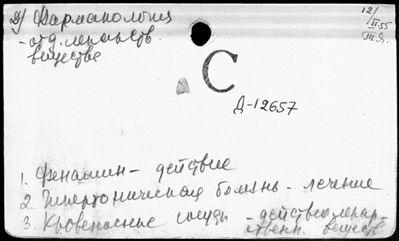 д) Фармакология
- отд. лекарств.
вещества
12/II 55
С
Д-12657
1. Фенамин - действие
2. Гипертоническая болезнь - лечение
3. Кровеносные сосуды - действие лекар-
ственн. веществ